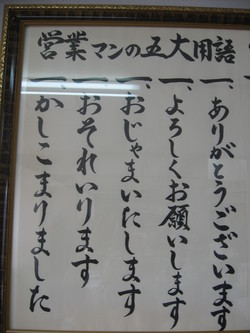 営業マンの五大用語
一、ありがとうございます
一、よろしくお願いします
一、おじゃまいたします
一、おそれいります
一、かしこまりました